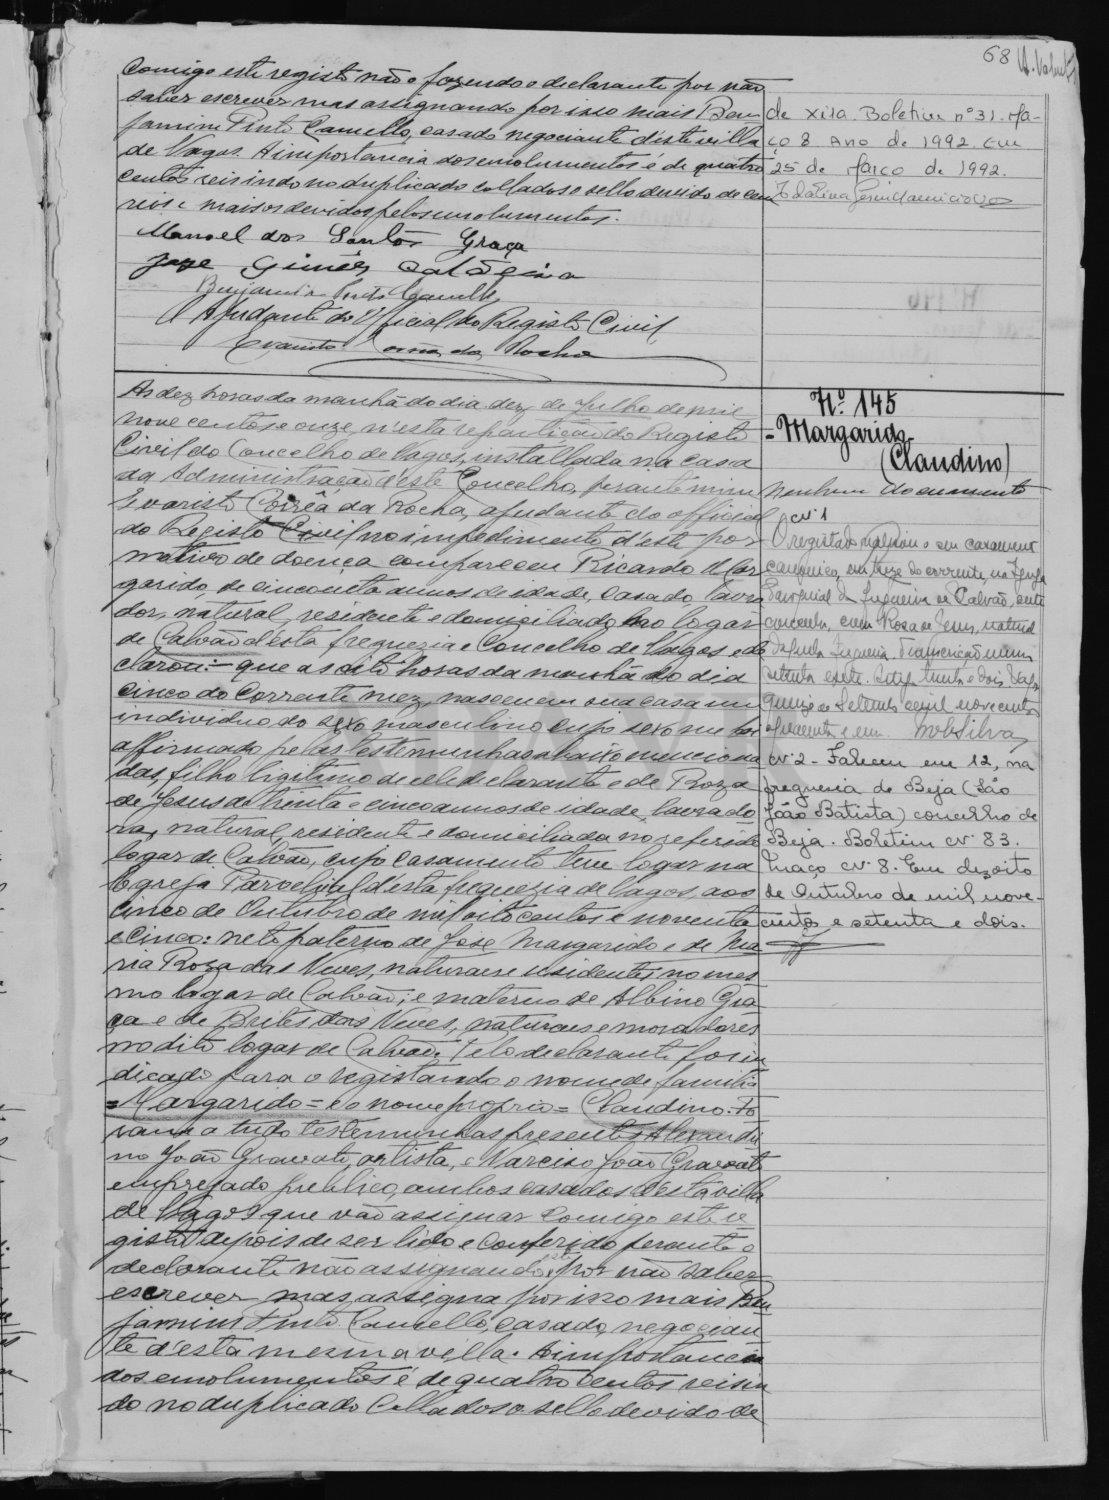 68
Comigo este registo não o fazendo o declarante por não
saber escrever mas assignando por isso mais Ben
jamim Pinto Camello, casado negociante d'esta villa
de Vagos. A importancia dos emolumentos é de quatro
centos reis indo no duplicado collados o sello devido de cem
reis e mais os devidos pelos emolumentos.
Manoel dos Santos Graça
José
Benjamim Pinto Camello
O Ajudante do Official do Registo Civil
Evaristo Corrêa da Rocha
de Xira. Boletim nº 31. Ma-
ço 8 Ano de 1992. Em
25 de Março de 1992.
As dez horas da manhã do dia dez de Julho de mil
nove centos e onze, n'esta repartição do Registo
Civil do Concelho de Vagos, installada na casa
da Administração d'este Concelho, perante mim
Evaristo Corrêa da Rocha, ajudante do official
do Registo Civil no impedimento d'este por
motivo de doença compareceu Ricardo Mar
garido, de cincoenta annos de idade, casado lavra
dor, natural, residente e domiciliado no logar
de Calvão d'esta freguezia e Concelho de Vagos e de
clarou: – que as oito horas da manhã do dia
cinco do corrente mez, nasceu em sua casa um
individuo do sexo masculino cujo sexo me foi
affirmado pelas testemunhas abaixo menciona
das, filho ligitimo de elle declarante e de Roza
de Jesus de trinta e cinco annos de idade, lavrado
ra, natural, residente e domiciliada no referido
logar de Calvão, cujo casamento teve logar na
Egreja Parochial d'esta freguezia de Vagos, aos
cinco de Outubro de mil oito centos e noventa
e cinco: neto paterno de José Margarido e de Ma
ria Roza das Neves, naturaes e residentes no mes
mo logar de Calvão; e materno de Albino Gra
ça e de Brites das Neves, naturaes e moradores
no dito logar de Calvão. Pelo declarante foi in
dicado para o registando o nome de familia
= Margarido = e o nome proprio = Claudino. Fo
ram a tudo testemunhas presentes Alexandri
no João Gravato, artista, e Narciso João Gravato
empregado publico, ambos casados d'esta villa
de Vagos que vão assignar comigo este re
gisto depois de ser lido e conferido perante o
declarante não assignando este por não saber
escrever mas assigna por isso mais Ben
jamim Pinto Camello, casado, negocian
te d'esta mesma villa. A importancia
dos emolumentos é de quatro centos reis in
do no duplicado collados o sello devido de
Nº 145
= Margarido
(Claudino)
Nenhum documento
Nº 1
O registado realizou o seu casamento
canonico, em treze do corrente, na Igreja
Paroquial da freguesia de Calvão, este
concelho, com Rosa de Jesus, natural
da freguesia. Transcrição numero
setenta e sete.
quinze de Setembro de mil novecentos
Silva
Nº 2 - Faleceu em 12, na
freguesia de Beja (São
João Batista) concelho de
Beja. Boletim Nº 83.
Maço Nº 8. Em dezoito
de Outubro de mil nove-
centos e setenta e dois.